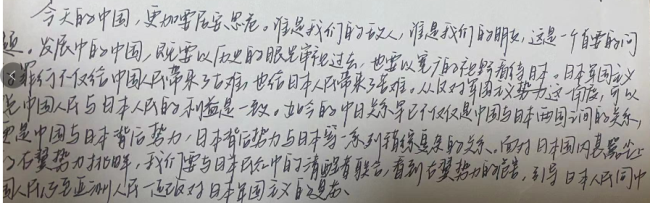 今天的中国，更加要居安思危。谁是我们的敌人，谁是我们的朋友，这是一个首要的问
题。发展中的中国，既要以历史的眼光审视过去，也要以宽广的视野看待日本。日本军国主义
罪行不仅给中国人民带来了苦难，也给日本人民带来了苦难。从反对军国主义势力这一角度，可以
中国人民与日本人民的利益是一致。如今的中日关系早已不仅仅是中国与日本两国之间的关系，
更是中国与日本背后势力，日本背后势力与日本等一系列错综复杂的关系。面对日本国内
右翼势力挑衅，我们要与日本民众中的清醒者联合，看到右翼势力的危害，引导日本人民同中
国人民乃至亚洲人民一道反对日本军国主义的复苏。